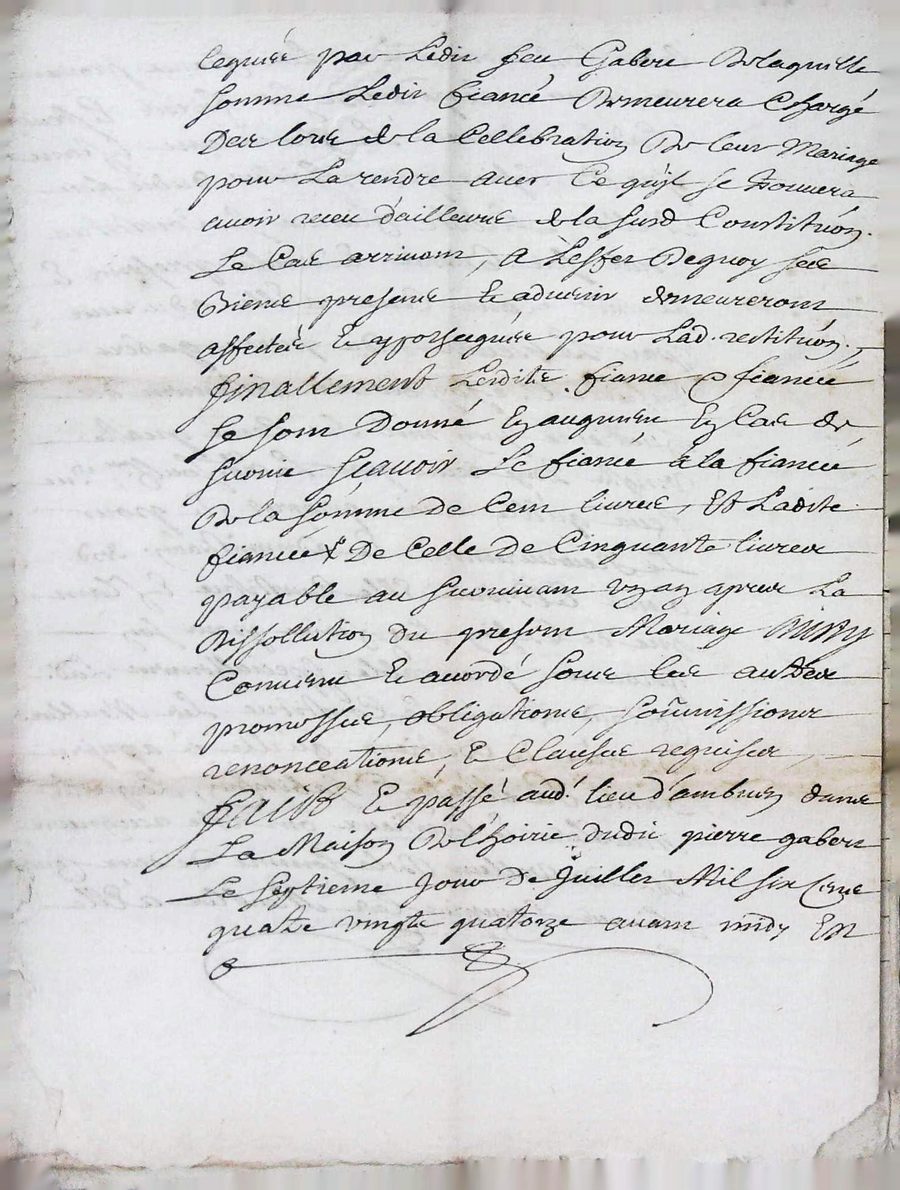 leguée par Ledit feu Gabert De laquelle
somme Ledit fiancé Demeurera Chargé
Dees lors de la Cellebration De leur Mariage
pour La rendre avec Ce qu'il se trouvera
avoir receu d'ailleurs de la susd Constitution.
Le Cas arrivant, A L'effet Dequoy ses
Biens presens et advenir demeureront
affectés et ypotequées pour Lad. restitution,
finallement Lesdits fiancé & fiancée
se sont Donné En augment En Cas de
survie sçavoir Le fiancé a la fiancée
De la somme de Cent livres, Et Ladite
fiancée De Celle de Cinquante livres
payable au survivant un an apres La
Dissollution du present Mariage ainsy
Convenu et acordé sous les autres
promesses, obligations, soumissions
renonceations, et Clauses requises,
faict et passé aud. lieu d'ambrun dans
La Maison De l'hoirie dudit pierre gabert
Le septieme Jour de Juillet Mil six Cens
quatre vingts quatorze avant midy En